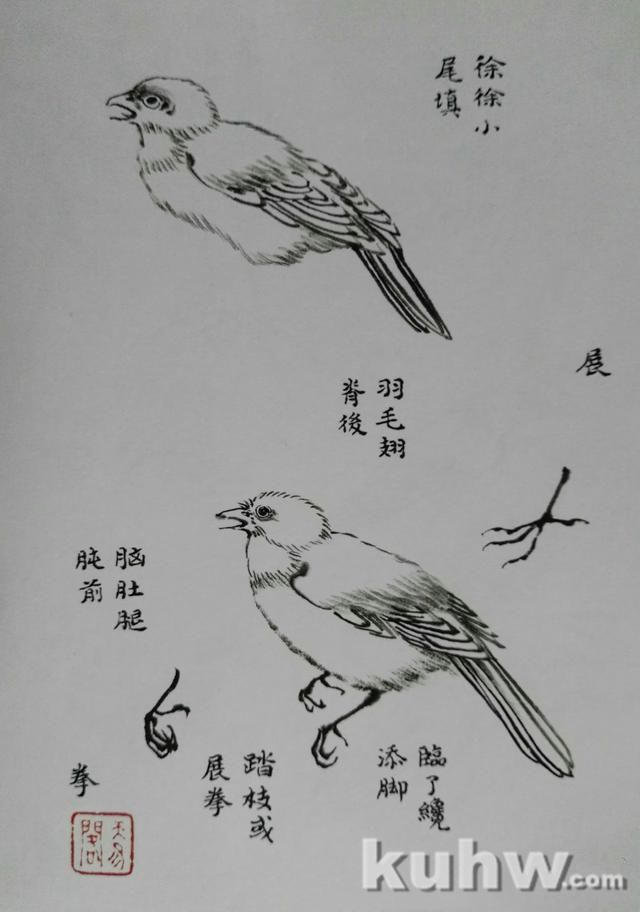 徐徐小
尾填
展
羽毛翅
脊後
脑肚腿
肫前
臨了纔
添脚
踏枝或
展拳
拳
kuhw.com